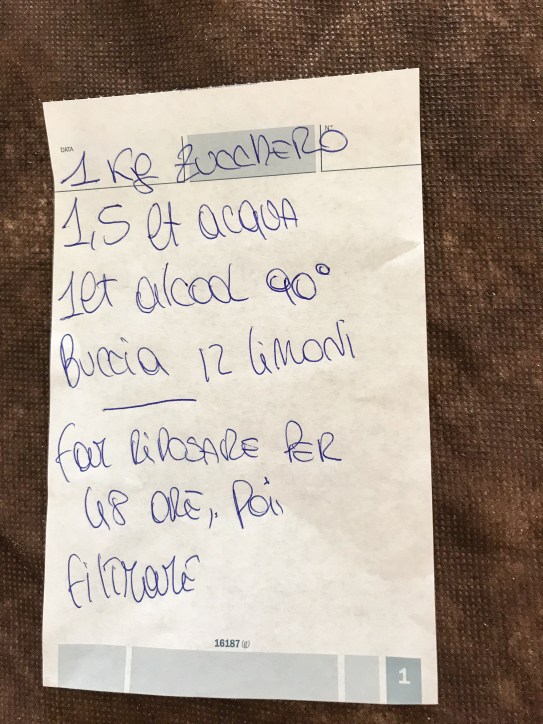 DATA
N°
1 Kg ZUCCHERO
1,5 lt acqua
1 lt alcool 90°
Buccia 12 limoni
far RIPOSARE PER
48 ORE, poi
filtrare
16187 (g)
1